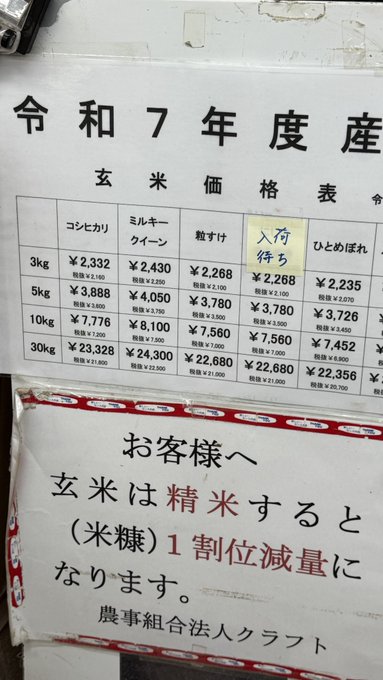 令和7年度産
玄米価格表 令
コシヒカリ ミルキークイーン 粒すけ 入荷待ち ひとめぼれ
3kg ¥2,332 ¥2,430 ¥2,268 ¥2,268 ¥2,235
税抜¥2,160 税抜¥2,250 税抜¥2,100 税抜¥2,100 税抜¥2,070
5kg ¥3,888 ¥4,050 ¥3,780 ¥3,780 ¥3,726
税抜¥3,600 税抜¥3,750 税抜¥3,500 税抜¥3,500 税抜¥3,450
10kg ¥7,776 ¥8,100 ¥7,560 ¥7,560 ¥7,452
税抜¥7,200 税抜¥7,500 税抜¥7,000 税抜¥7,000 税抜¥6,900
30kg ¥23,328 ¥24,300 ¥22,680 ¥22,680 ¥22,356
税抜¥21,600 税抜¥22,500 税抜¥21,000 税抜¥21,000 税抜¥20,700
お客様へ
玄米は精米すると
(米糠)1割位減量に
なります。
農事組合法人クラフト